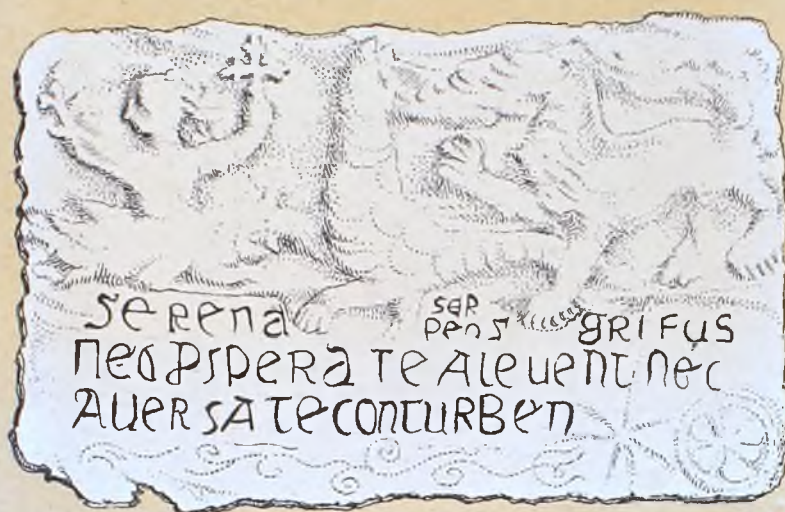 serena serpens grifus
nec prspera te alevent nec
aversa te conturben